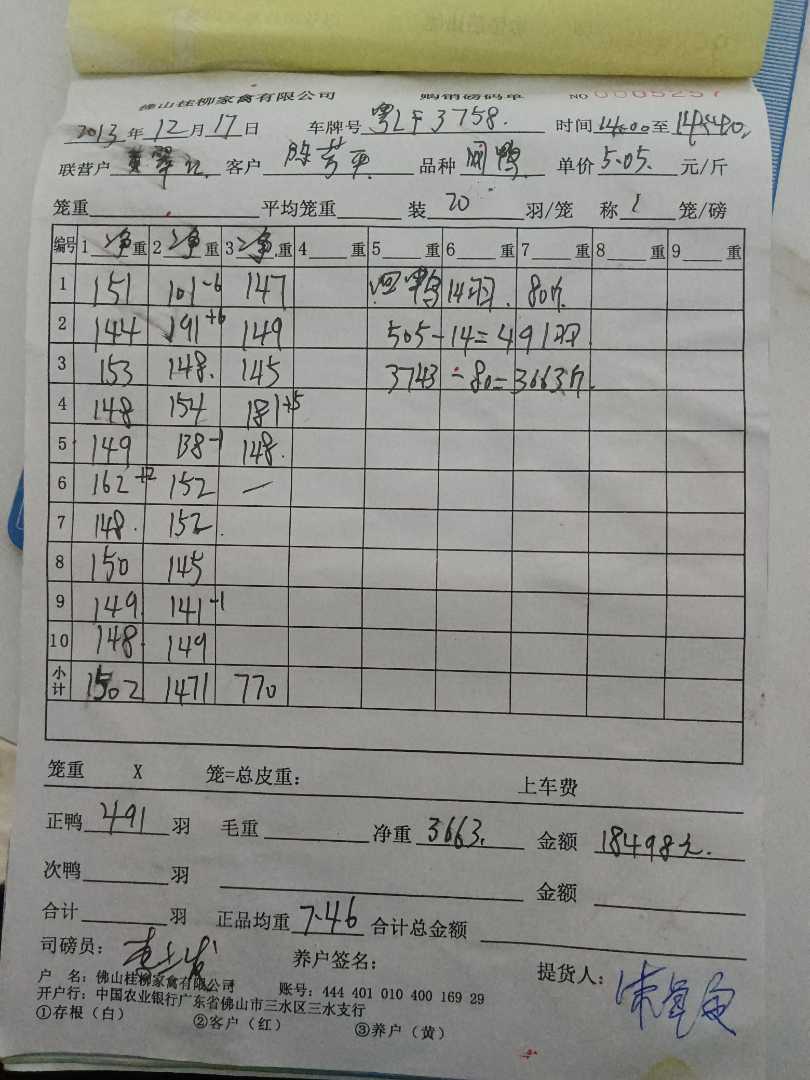 佛山桂柳家禽有限公司 购销磅码单 NO 0005257
2013年12月17日 车牌号 粤L 3758. 时间 14:00至14:40
联营户 客户 陈芳平 品种 鸭 单价 5.05. 元/斤
笼重 平均笼重 装 20 羽/笼 称 2 笼/磅
编号 1 净 重 2 净 重 3 净 重 4 重 5 重 6 重 7 重 8 重 9 重
1 151 101-6 147 14羽. 80斤.
2 144 191+6 149 505-14=491羽
3 153 148. 145 3743-80=3663斤.
4 148 154 181+5
5 149 138-1 148.
6 162+2 152 —
7 148. 152.
8 150 145
9 149 141-1
10 148 149
小计 1502 1471 770
笼重 X 笼=总皮重: 上车费
正鸭 491 羽 毛重 净重 3663. 金额 18498元.
次鸭 羽 金额
合计 羽 正品均重 7.46 合计总金额
司磅员: 养户签名: 提货人:
户 名: 佛山桂柳家禽有限公司 账号: 444 401 010 400 169 29
开户行: 中国农业银行广东省佛山市三水区三水支行
①存根(白) ②客户(红) ③养户(黄)